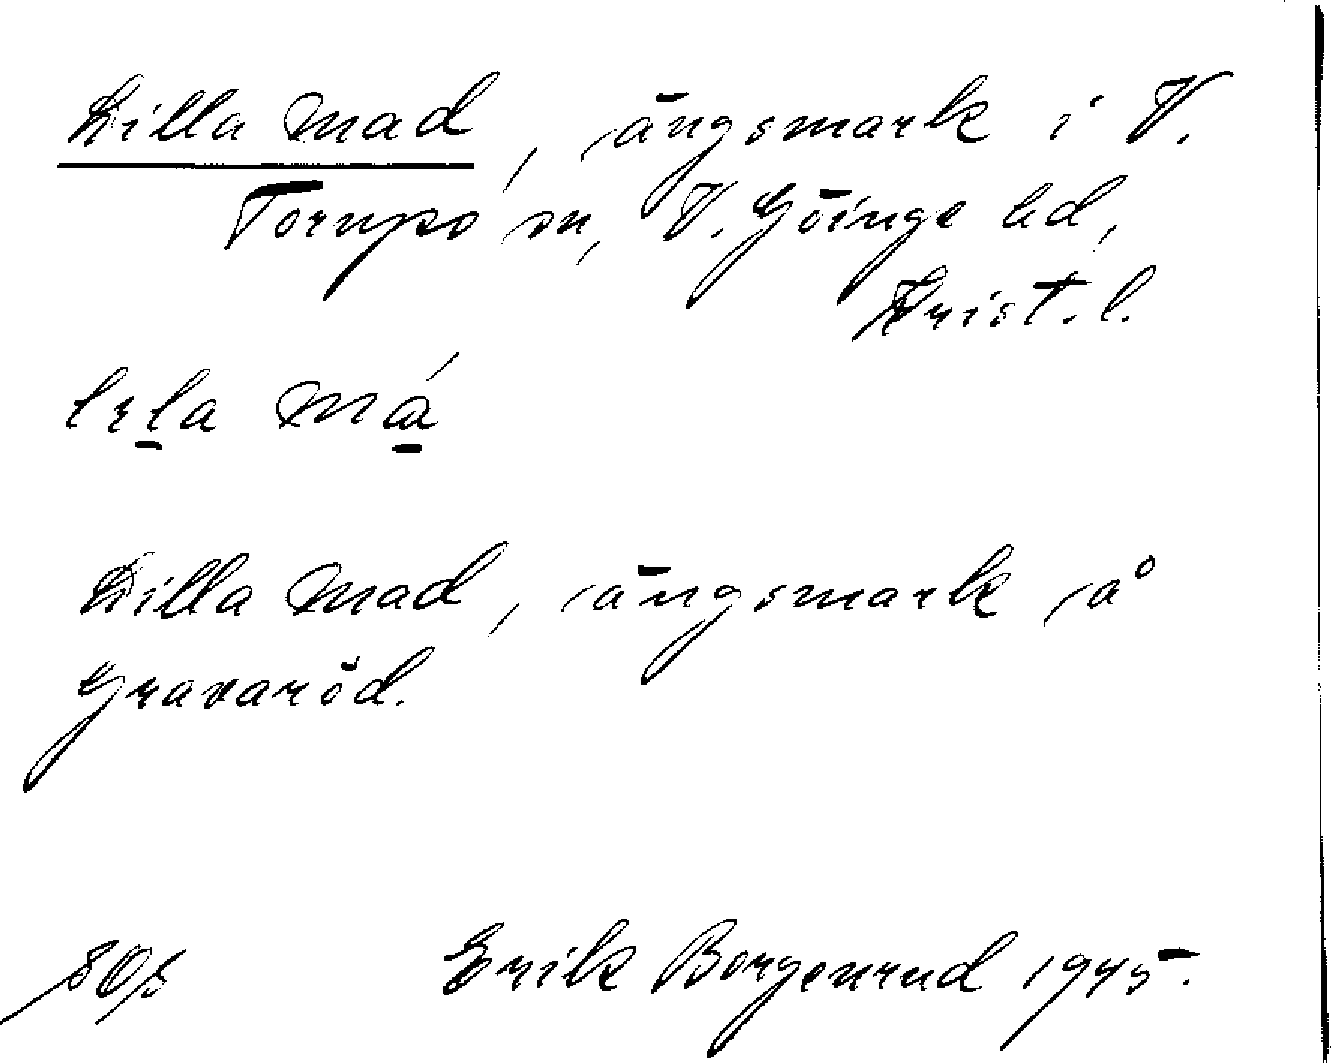 Lilla mad, ängsmark i V.
Torups sn, V. Göinge hd,
Krist. l.
lela má
Lilla mad, ängsmark å
Gravaröd.
Erik Borgenrud 1945.